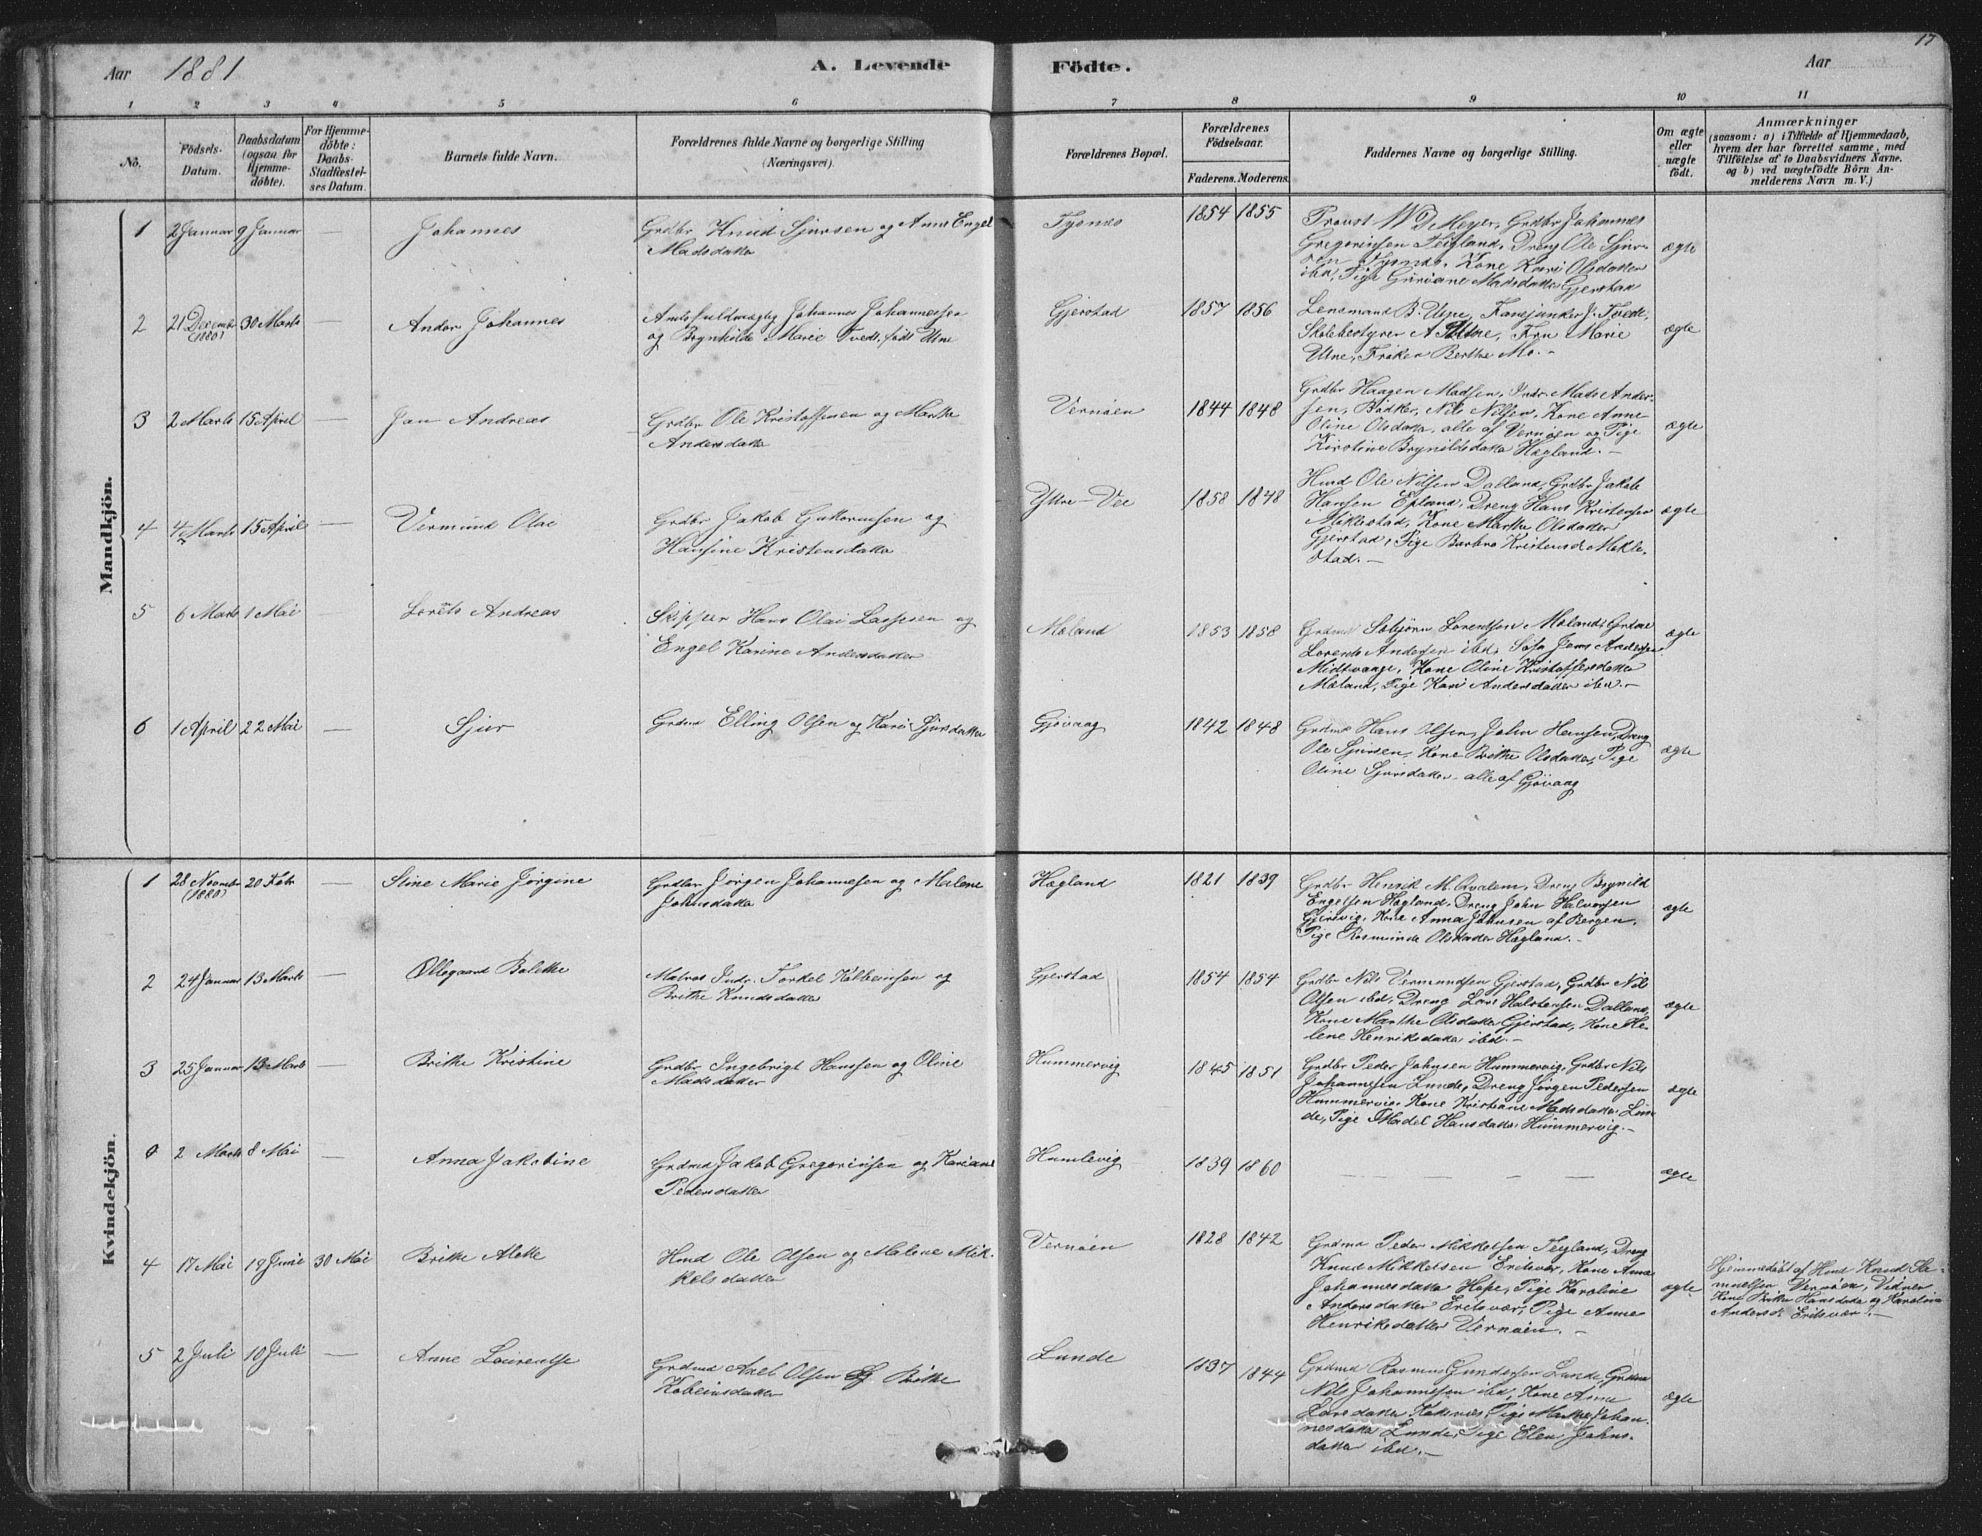 Aar 1881 A. Levende Födte. Aar 17
1 2 3 4 5 6 7 8 9 10 11
No.
Födsels-
Datum.
Daabsdatum
(ogsaa for
Hjemme-
döbte).
For Hjemme-
döbte:
Daabs-
Stadfæstel-
ses Datum.
Barnets fulde Navn.
Forældrenes fulde Navne og borgerlige Stilling
(Næringsvei).
Forældrenes Bopæl.
Forældrenes
Födselsaar.
Faderens. Moderens.
Faddernes Navne og borgerlige Stilling.
Om ægte
eller
uægte
födt.
Anmærkninger
(saasom: a) i Tilfælde af Hjemmedaab,
hvem der har forrettet samme, med
Tilföielse af to Daabsvidners Navne,
og b) ved uægtefödte Börn An-
melderens Navn m. V.)
Mandkjön.
1 2 Januar 9 Januar Johannes
Grdbr Knud Sjursen og Anne Engel
Madsdatter
Tysnes 1854 1855
Provst W D Meyer, Grdbr Johannes
Gregoriusen Teigland, Dreng Ole Sjur-
sen Tysnes, Kone Kari Olsdatter
ibd, Pige Guriane Madsdatter Gjerstad
ægte
2 21 Decembr (1880) 30 Marts — Andor Johannes
Amtsfuldmægtig Johannes Johannesen
og Brynhilde Marie Tvedt, født Utne
Gjerstad 1857 1856
Lensmand B. Utne, Fansjunker J. Tvedt,
Skolebestyrer A Utne, Fru Marie
Utne, Frøken Berthe Mo. -
ægte
3 2 Marts 15 April — Jan Andreas
Grdbr Ole Kristoffersen og Marthe
Andersdatter
Vernøen 1844 1848
Grdbr Haagen Madsen, Indr Mads Ander-
sen, Bødker Nils Nilsen, Kone Anne
Oline Olsdatter, alle af Vernøen og Pige
Kirstine Brynildsdatter Hægland. -
ægte
4 4 Marts 15 April — Vermund Olai
Grdbr Jakob Guttormsen og
Hansine Kristensdatter
Ytre-Vee 1858 1848
Husd Ole Nilsen Dalland, Grdbr Jakob
Hansen Epland, Dreng Hans Kristensen
Miklestad, Kone Marthe Olsdatter
Gjerstad, Pige Barbro Kristensd Mikle-
stad. -
ægte
5 6 Marts 1 Mai — Lorets Andreas
Skipper Hans Olai Lassesen og
Engel Karine Andersdatter
Mæland 1853 1858
Grdmd Asbjørn Lorentsen Mæland, Grdm
Lorents Andersen ibd, Søfa Jens Andersen
Midtvaage, Kone Oline Kristoffersdatter
Mæland, Pige Kari Andersdatter ibd. -
ægte
6 1 April 22 Mai — Sjur
Grdmd Elling Olsen og Kari Sjursdatter
Gjøvaag 1842 1848
Grdmd Hans Olsen, John Hansen, Dreng
Ole Sjursen, Kone Brithe Olsdatter, Pige
Oline Sjursdatter alle af Gjøvaag
ægte
Kvindekjön.
1 28 Novmbr (1880) 20 Febr — Stine Marie Jørgine
Grdbr Jørgen Johannesen og Malene
Johnsdatter
Hægland 1821 1839
Grdbr Henrik M. Kvalem, Dreng Brynild
Engelsen Hægland, Dreng John Halvorsen
Gjersvig, Kone Anna Johnsen af Bergen,
Pige Rasmunde Olsdatter Hægland. -
ægte
2 24 Januar 13 Marts — Ollegaard Bolette
Matros Indr. Torkel Kolbeinsen og
Brithe Knudsdatter
Gjerstad 1854 1854
Grdbr Nils Vermundsen Gjerstad, Grdbr Nils
Olsen ibd, Dreng Lars Halstensen Dalland,
Kone Marthe Olsdatter Gjerstad, Kone He-
lene Henriksdatter ibd. -
ægte
3 25 Januar 13 Marts — Brithe Kristine
Grdbr Ingebrigt Hanssen og Oline
Madsdatter
Hummervig 1845 1851
Grdbr Peder Johnsen Hummervig, Grdbr Nils
Johannesen Lunde, Dreng Jørgen Pedersen
Hummervig, Kone Kristiane Madsdatter Lun-
de, Pige Madel Hansdatter Hummervig. -
ægte
0 2 Marts 8 Mai — Anna Jakobine
Grdmd Jakob Gregoriusen og Kariane
Pedersdatter
Humlevig 1839 1860 — — — — ægte
4 17 Mai 19 Juni 30 Mai Brithe Alette
Husd Ole Olsen og Malene Mik-
kelsdatter
Vernøen 1828 1842
Grdmd Peder Mikkelsen Teigland, Dreng
Knud Mikkelsen Eritsvær, Kone Anna
Johannesdatter Hope, Pige Karoline
Andersdatter Eritsvær, Pige Anne
Henriksdatter Vernøen. -
ægte
Hjemmedøbt af Husd Knud Sa-
muelsen Vernøen, Vidner
Kone Brithe Hansdatter og Karoline
Andersd. Eritsvær. -
5 2 Juli 10 Juli — Anne Laurentse
Grdmd Axel Olsen og Brithe
Kobeinsdatter
Lunde 1837 1844
Grdmd Rasmus Gundersen Lunde, Grdmd
Nils Johannessen ibd, Kone Anna
Larsdatter Koksnes, Pige Marthe Johan-
nesdatter Lunde, Pige Elen Johns-
datter ibd. -
ægte